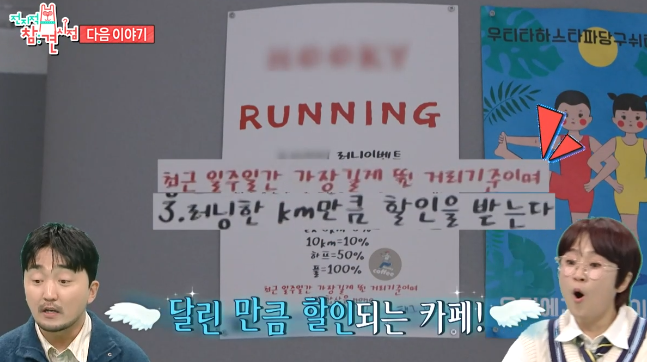 전지적
참견시점
다음 이야기
RUNNING
러너이벤트
최근 일주일간 가장길게 뛴 거리기준이며
3.러닝한 km만큼 할인을 받는다
10km=10%
하프=50%
풀=100%
최근 일주일간 가장길게 뛴 거리기준이며
우티타하스타파당구쉬
달린 만큼 할인되는 카페!